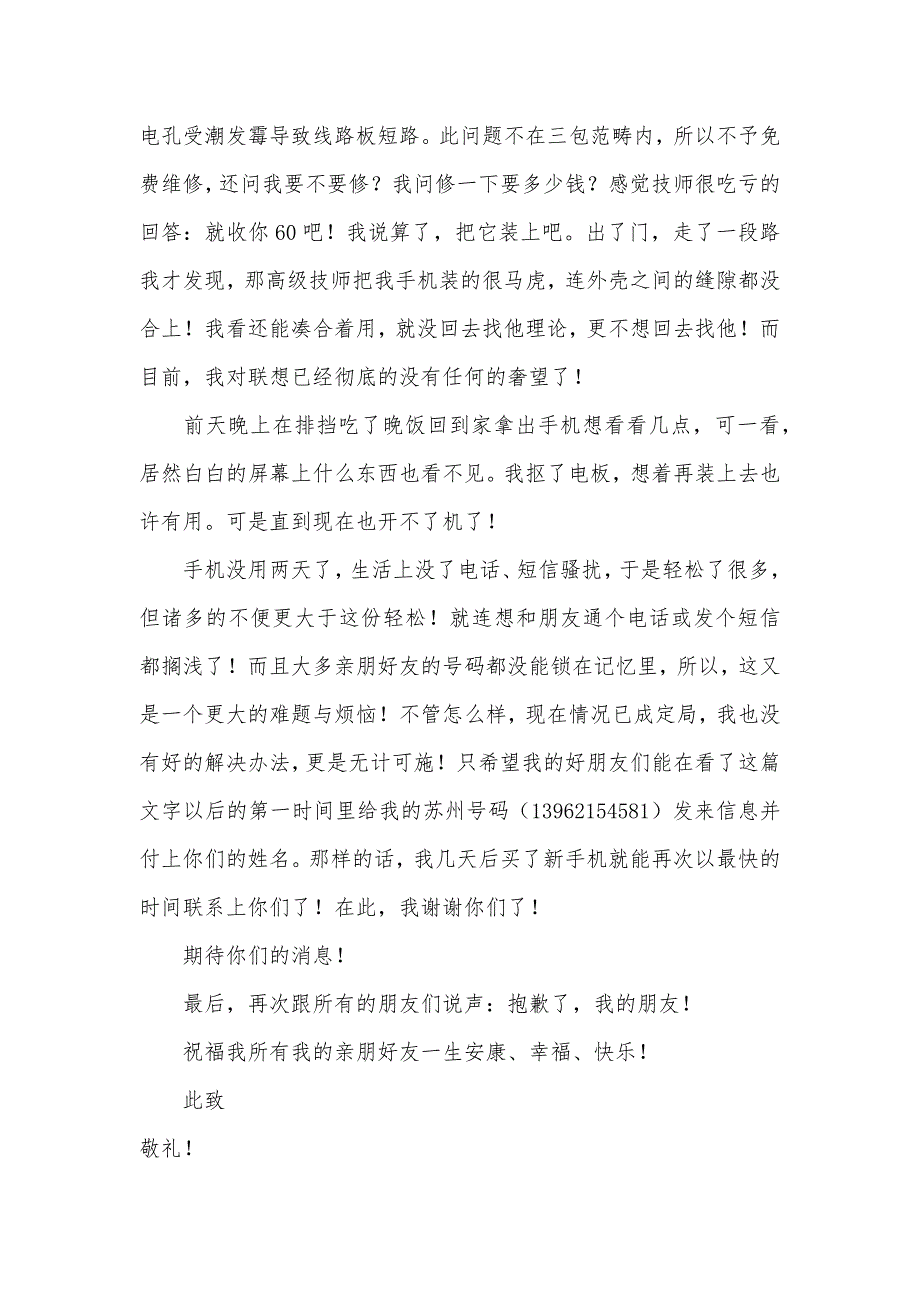 电孔受潮发霉导致线路板短路。此问题不在三包范畴内，所以不予免
费维修，还问我要不要修？我问修一下要多少钱？感觉技师很吃亏的
回答：就收你 60 吧！我说算了，把它装上吧。出了门，走了一段路
我才发现，那高级技师把我手机装的很马虎，连外壳之间的缝隙都没
合上！我看还能凑合着用，就没回去找他理论，更不想回去找他！而
目前，我对联想已经彻底的没有任何的奢望了！
前天晚上在排挡吃了晚饭回到家拿出手机想看看几点，可一看，
居然白白的屏幕上什么东西也看不见。我抠了电板，想着再装上去也
许有用。可是直到现在也开不了机了！
手机没用两天了，生活上没了电话、短信骚扰，于是轻松了很多，
但诸多的不便更大于这份轻松！就连想和朋友通个电话或发个短信
都搁浅了！而且大多亲朋好友的号码都没能锁在记忆里，所以，这又
是一个更大的难题与烦恼！不管怎么样，现在情况已成定局，我也没
有好的解决办法，更是无计可施！只希望我的好朋友们能在看了这篇
文字以后的第一时间里给我的苏州号码（13962154581）发来信息并
付上你们的姓名。那样的话，我几天后买了新手机就能再次以最快的
时间联系上你们了！在此，我谢谢你们了！
期待你们的消息！
最后，再次跟所有的朋友们说声：抱歉了，我的朋友！
祝福我所有我的亲朋好友一生安康、幸福、快乐！
此致
敬礼！